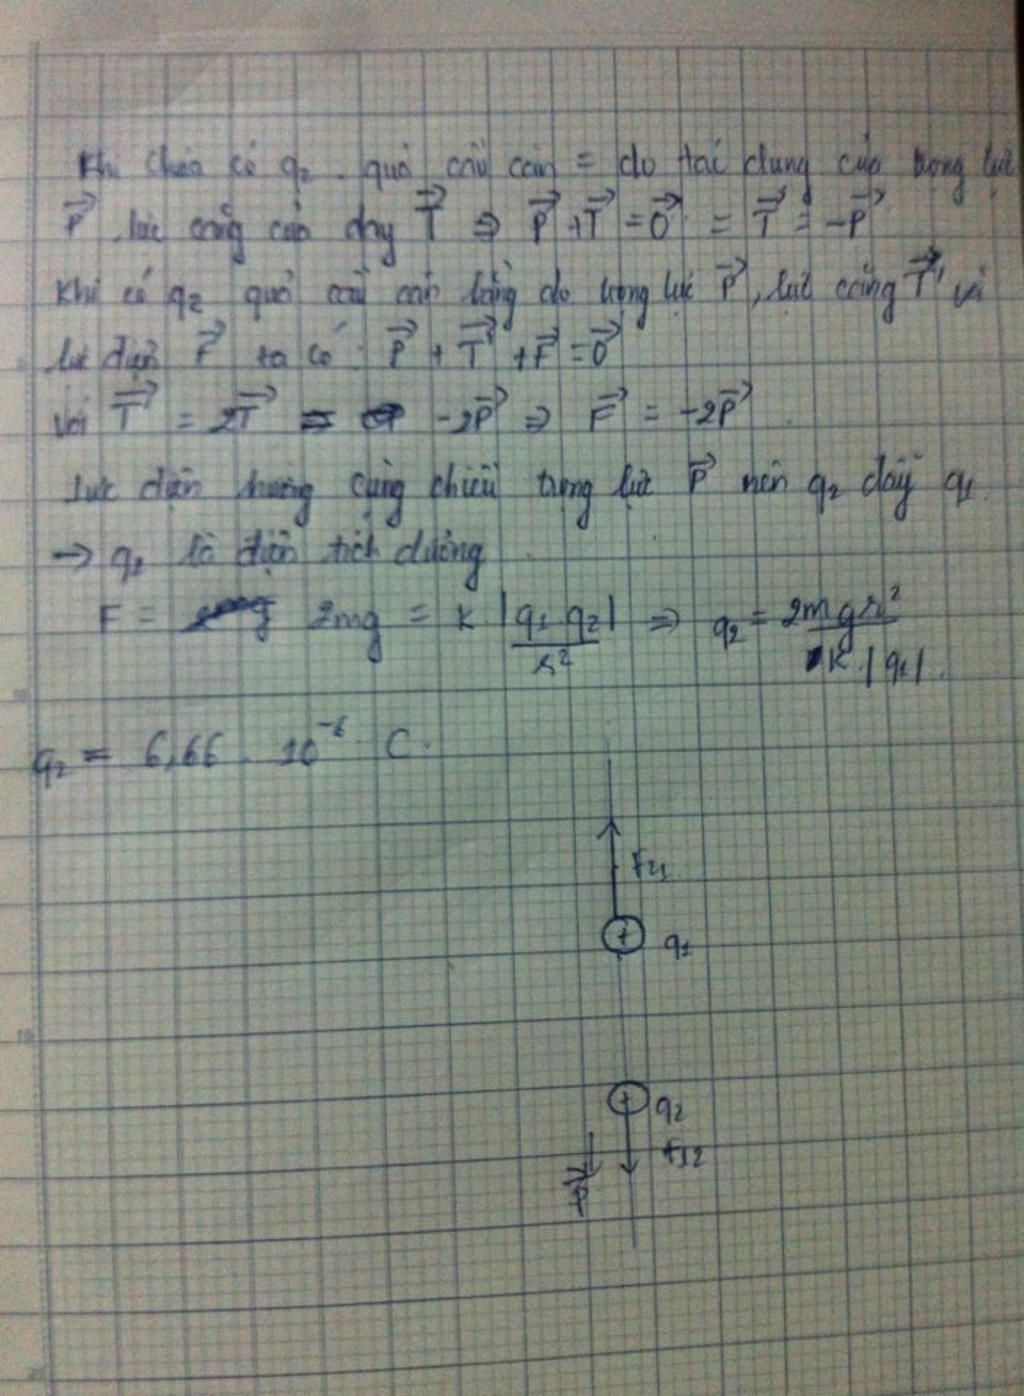 Khi chưa có q₂ quả cầu cân = do tác dụng của trọng lực
P⃗, lực căng của dây T⃗ ⇒ P⃗ + T⃗ = 0⃗ = T⃗ = -P⃗
Khi có q₂ quả cầu cân bằng do trọng lực P⃗, lực căng T⃗' và
lực điện F⃗ ta có: P⃗ + T⃗' + F⃗ = 0⃗
Với T⃗' = 2T⃗ = -2P⃗ ⇒ F⃗ = -2P⃗.
Lực điện hướng cùng chiều trọng lực P⃗ nên q₂ đẩy q₁
→ q₁ là điện tích dương
F = 2mg = K |q₁ q₂| / r² ⇒ q₂ = 2mgr² / K.|q₁|.
q₂ = 6,66 . 10⁻⁶ C.
F₂₁
+ q₁
+ q₂
F₁₂
P⃗